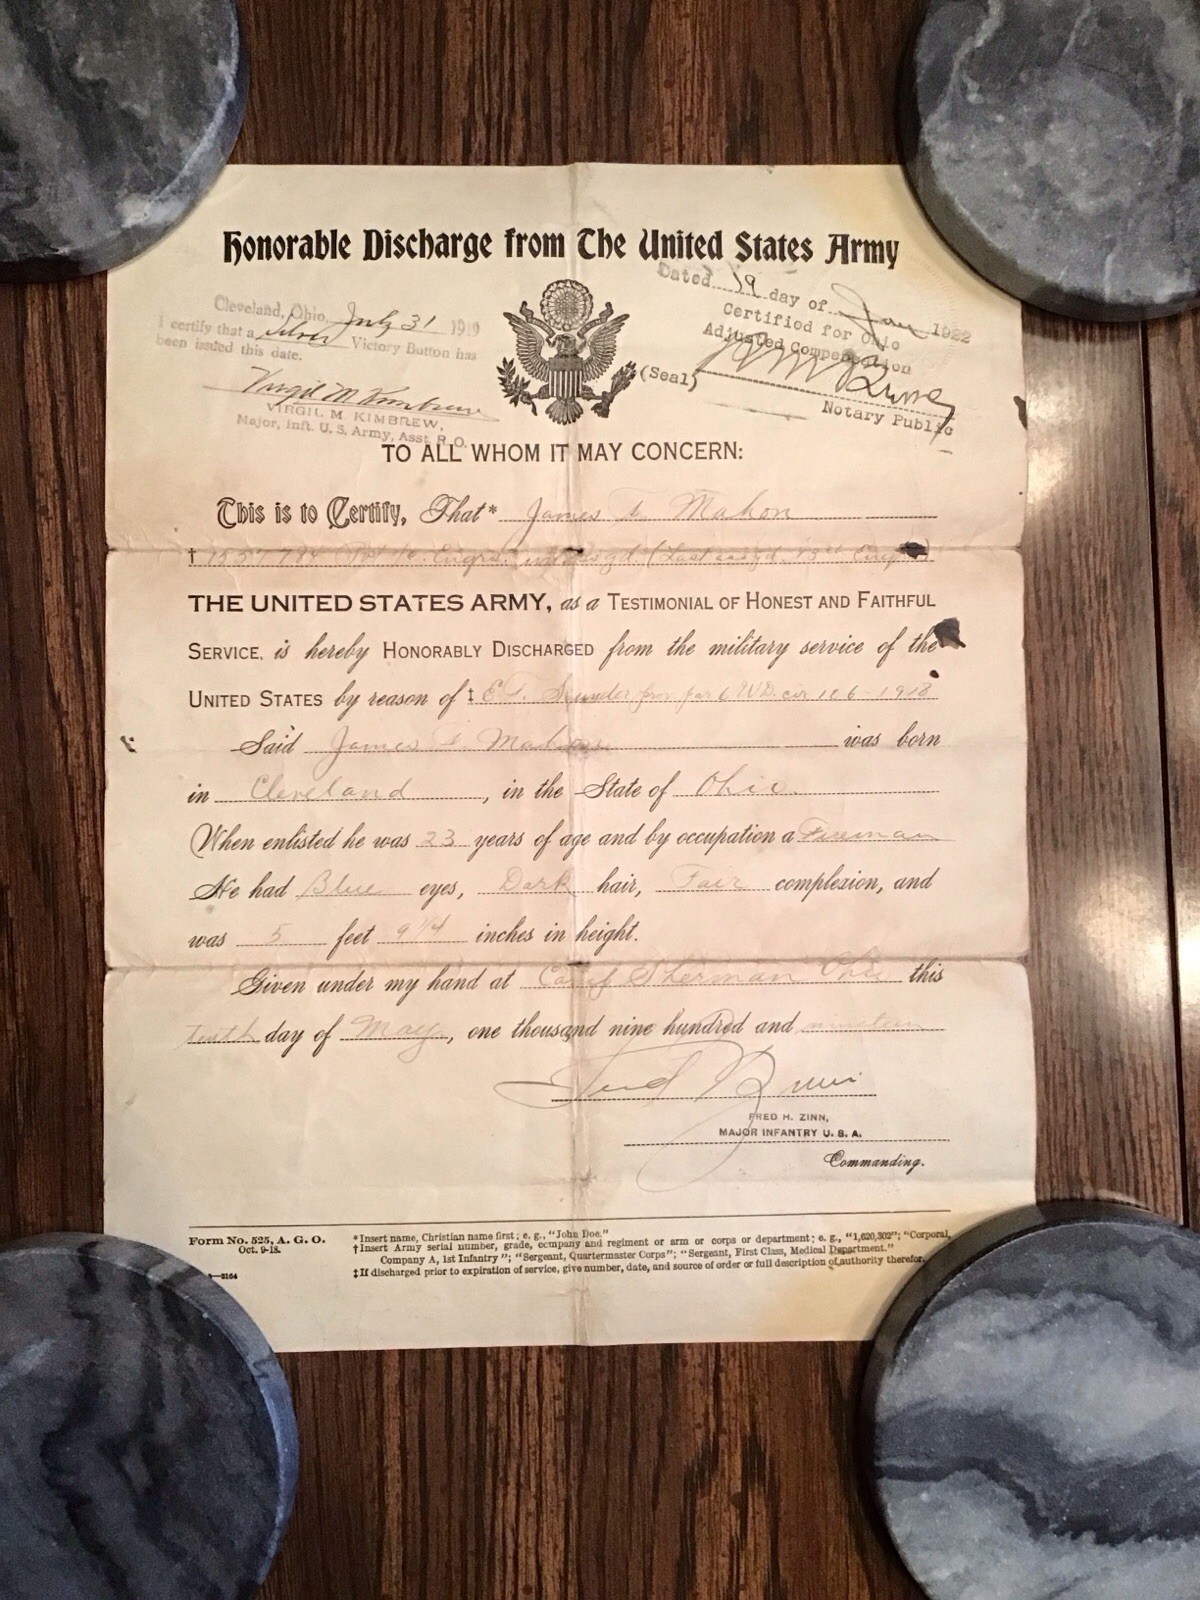 Honorable Discharge from The United States Army
Cleveland, Ohio, July 31 1919
I certify that a silver Victory Button has
been issued this date.
Virgil M Kimbrew
VIRGIL M. KIMBREW,
Major, Inft. U. S. Army, Asst. R. O.
Dated 19 day of Jan 1922
Certified for Ohio
Adjusted Compensation
(Seal)
Notary Public
TO ALL WHOM IT MAY CONCERN:
This is to Certify, That* James Mahon
† Engrs. (Last assgd. Engrs)
THE UNITED STATES ARMY, as a TESTIMONIAL OF HONEST AND FAITHFUL
SERVICE, is hereby HONORABLY DISCHARGED from the military service of the
UNITED STATES by reason of ‡ E.T. S. under prov. par 6 W.D. cir 106-1918
Said James Mahon was born
in Cleveland, in the State of Ohio.
When enlisted he was 23 years of age and by occupation a Fireman
He had Blue eyes, Dark hair, Fair complexion, and
was 5 feet 9 1/4 inches in height.
Given under my hand at Camp Sherman Ohio this
Tenth day of May, one thousand nine hundred and nineteen
Fred H Zinn
FRED H. ZINN,
MAJOR INFANTRY U. S. A.
Commanding.
Form No. 525, A. G. O.
Oct. 9-18.
3—3164
*Insert name, Christian name first; e. g., "John Doe."
†Insert Army serial number, grade, company and regiment or arm or corps or department; e. g., "1,620,302"; "Corporal,
Company A, 1st Infantry"; "Sergeant, Quartermaster Corps"; "Sergeant, First Class, Medical Department."
‡If discharged prior to expiration of service, give number, date, and source of order or full description of authority therefor.